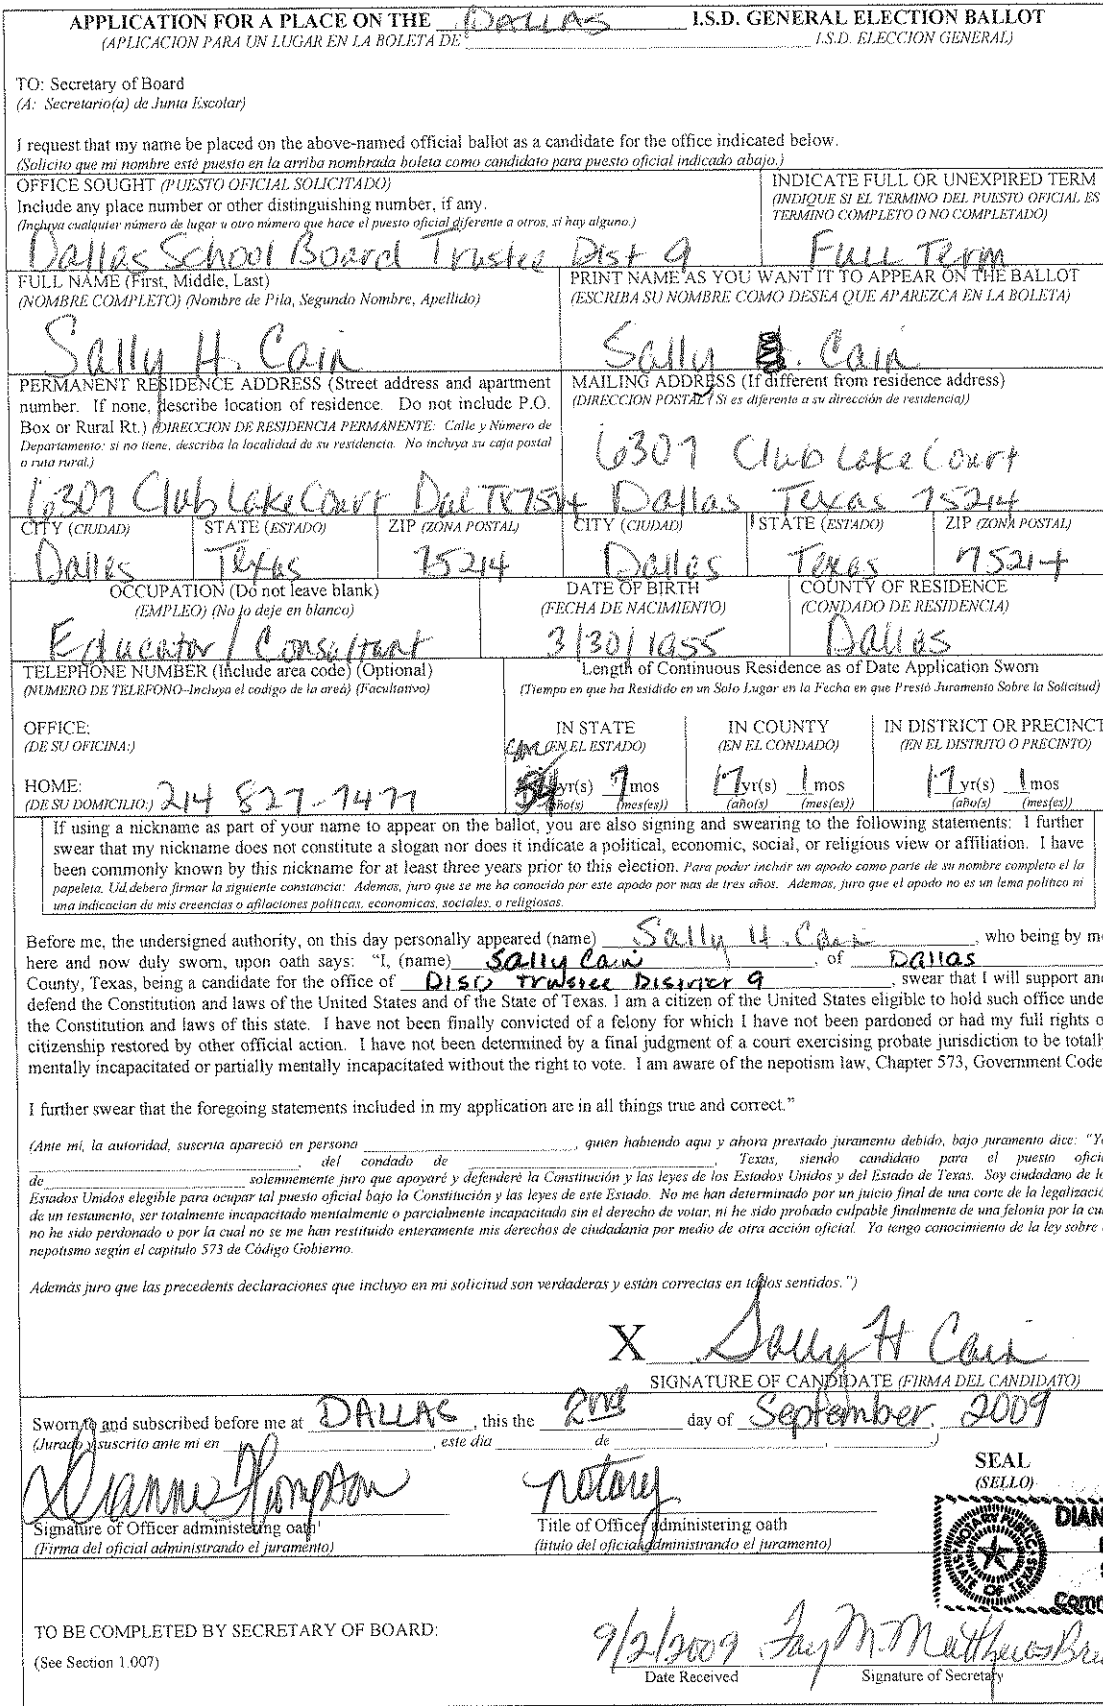 APPLICATION FOR A PLACE ON THE DALLAS I.S.D. GENERAL ELECTION BALLOT
(APLICACION PARA UN LUGAR EN LA BOLETA DE I.S.D. ELECCION GENERAL)
TO: Secretary of Board
(A: Secretario(a) de Junta Escolar)
I request that my name be placed on the above-named official ballot as a candidate for the office indicated below.
(Solicito que mi nombre esté puesto en la arriba nombrada boleta como candidato para puesto oficial indicado abajo.)
OFFICE SOUGHT (PUESTO OFICIAL SOLICITADO)
Include any place number or other distinguishing number, if any.
(Incluya cualquier número de lugar u otro número que hace el puesto oficial diferente a otros, si hay alguno.)
Dallas School Board Trustee Dist 9
INDICATE FULL OR UNEXPIRED TERM
(INDIQUE SI EL TERMINO DEL PUESTO OFICIAL ES
TERMINO COMPLETO O NO COMPLETADO)
Full Term
FULL NAME (First, Middle, Last)
(NOMBRE COMPLETO) (Nombre de Pila, Segundo Nombre, Apellido)
Sally H. Cain
PRINT NAME AS YOU WANT IT TO APPEAR ON THE BALLOT
(ESCRIBA SU NOMBRE COMO DESEA QUE APAREZCA EN LA BOLETA)
Sally . Cain
PERMANENT RESIDENCE ADDRESS (Street address and apartment
number. If none, describe location of residence. Do not include P.O.
Box or Rural Rt.) (DIRECCION DE RESIDENCIA PERMANENTE: Calle y Número de
Departamento: si no tiene, describa la localidad de su residencia. No incluya su caja postal
o ruta rural.)
6307 Club Lake Court Dal TX 7514
MAILING ADDRESS (If different from residence address)
(DIRECCION POSTAL ( Si es diferente a su dirección de residencia))
6307 Club Lake Court
Dallas Texas 75214
CITY (CIUDAD) STATE (ESTADO) ZIP (ZONA POSTAL) CITY (CIUDAD) STATE (ESTADO) ZIP (ZONA POSTAL)
Dallas Texas 75214 Dallas Texas 75214
OCCUPATION (Do not leave blank)
(EMPLEO) (No lo deje en blanco)
Educator / Consultant
DATE OF BIRTH
(FECHA DE NACIMIENTO)
3/30/1955
COUNTY OF RESIDENCE
(CONDADO DE RESIDENCIA)
Dallas
TELEPHONE NUMBER (Include area code) (Optional)
(NUMERO DE TELEFONO-Incluya el codigo de la areá) (Facultativo)
OFFICE:
(DE SU OFICINA:)
HOME:
(DE SU DOMICILIO:) 214 827-7477
Length of Continuous Residence as of Date Application Sworn
(Tiempo en que ha Residido en un Solo Lugar en la Fecha en que Prestó Juramento Sobre la Solicitud)
IN STATE IN COUNTY IN DISTRICT OR PRECINCT
(EN EL ESTADO) (EN EL CONDADO) (EN EL DISTRITO O PRECINTO)
yr(s) 7 mos 17 yr(s) 1 mos 17 yr(s) 1 mos
(año(s) (mes(es)) (año(s) (mes(es)) (año(s) (mes(es))
If using a nickname as part of your name to appear on the ballot, you are also signing and swearing to the following statements: I further
swear that my nickname does not constitute a slogan nor does it indicate a political, economic, social, or religious view or affiliation. I have
been commonly known by this nickname for at least three years prior to this election. Para poder incluir un apodo como parte de su nombre completo el la
papeleta. Ud.debera firmar la siguiente constancia: Ademas, juro que se me ha conocido por este apodo por mas de tres años. Ademas, juro que el apodo no es un lema politico ni
una indicacion de mis creencias o afilaciones politicas, economicas, sociales, o religiosas.
Before me, the undersigned authority, on this day personally appeared (name) Sally H. Cain, who being by me
here and now duly sworn, upon oath says: "I, (name) Sally Cain, of Dallas
County, Texas, being a candidate for the office of DISD Trustee District 9, swear that I will support and
defend the Constitution and laws of the United States and of the State of Texas. I am a citizen of the United States eligible to hold such office unde
the Constitution and laws of this state. I have not been finally convicted of a felony for which I have not been pardoned or had my full rights o
citizenship restored by other official action. I have not been determined by a final judgment of a court exercising probate jurisdiction to be totall
mentally incapacitated or partially mentally incapacitated without the right to vote. I am aware of the nepotism law, Chapter 573, Government Code
I further swear that the foregoing statements included in my application are in all things true and correct."
(Ante mí, la autoridad, suscrita apareció en persona , quien habiendo aqui y ahora prestado juramento debido, bajo juramento dice: "Yo
, del condado de , Texas, siendo candidato para el puesto oficia
de solemnemente juro que apoyaré y defenderé la Constitución y las leyes de los Estados Unidos y del Estado de Texas. Soy ciudadano de lo
Estados Unidos elegible para ocupar tal puesto oficial bajo la Constitución y las leyes de este Estado. No me han determinado por un juicio final de una corte de la legalizació
de un testamento, ser totalmente incapacitado mentalmente o parcialmente incapacitado sin el derecho de votar, ni he sido probado culpable finalmente de una felonía por la cua
no he sido perdonado o por la cual no se me han restituido enteramente mis derechos de ciudadania por medio de otra acción oficial. Yo tengo conocimiento de la ley sobre
nepotismo según el capitulo 573 de Código Gobierno.
Además juro que las precedents declaraciones que incluyo en mi solicitud son verdaderas y están correctas en todos sentidos.")
X Sally H Cain
SIGNATURE OF CANDIDATE (FIRMA DEL CANDIDATO)
Sworn to and subscribed before me at DALLAS, this the 2nd day of September, 2009
(Jurado y suscrito ante mi en , este dia de , )
Dianne Thompson notary
SEAL
(SELLO)
Signature of Officer administering oath Title of Officer administering oath
(Firma del oficial administrando el juramento) (titulo del oficial administrando el juramento)
NOTARY PUBLIC STATE OF TEXAS
DIAN
Comm
TO BE COMPLETED BY SECRETARY OF BOARD:
(See Section 1.007)
9/2/2009 Fay M. Matthews Bru
Date Received Signature of Secretary